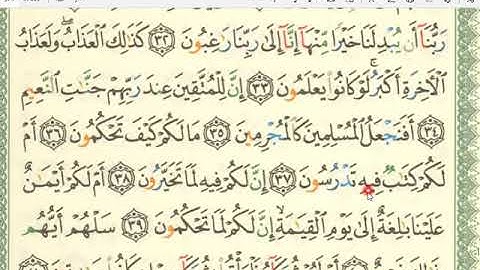 رَبُّنَآ أَن يُبْدِلَنَا خَيْرًا مِّنْهَآ إِنَّآ إِلَىٰ رَبِّنَا رَٰغِبُونَ ﴿٣٢﴾ كَذَٰلِكَ ٱلْعَذَابُ ۖ وَلَعَذَابُ
ٱلْـَٔاخِرَةِ أَكْبَرُ ۚ لَوْ كَانُوا۟ يَعْلَمُونَ ﴿٣٣﴾ إِنَّ لِلْمُتَّقِينَ عِندَ رَبِّهِمْ جَنَّٰتِ ٱلنَّعِيمِ
﴿٣٤﴾ أَفَنَجْعَلُ ٱلْمُسْلِمِينَ كَٱلْمُجْرِمِينَ ﴿٣٥﴾ مَا لَكُمْ كَيْفَ تَحْكُمُونَ ﴿٣٦﴾ أَمْ
لَكُمْ كِتَٰبٌ فِيهِ تَدْرُسُونَ ﴿٣٧﴾ إِنَّ لَكُمْ فِيهِ لَمَا تَخَيَّرُونَ ﴿٣٨﴾ أَمْ لَكُمْ أَيْمَٰنٌ
عَلَيْنَا بَٰلِغَةٌ إِلَىٰ يَوْمِ ٱلْقِيَٰمَةِ ۙ إِنَّ لَكُمْ لَمَا تَحْكُمُونَ ﴿٣٩﴾ سَلْهُمْ أَيُّهُم